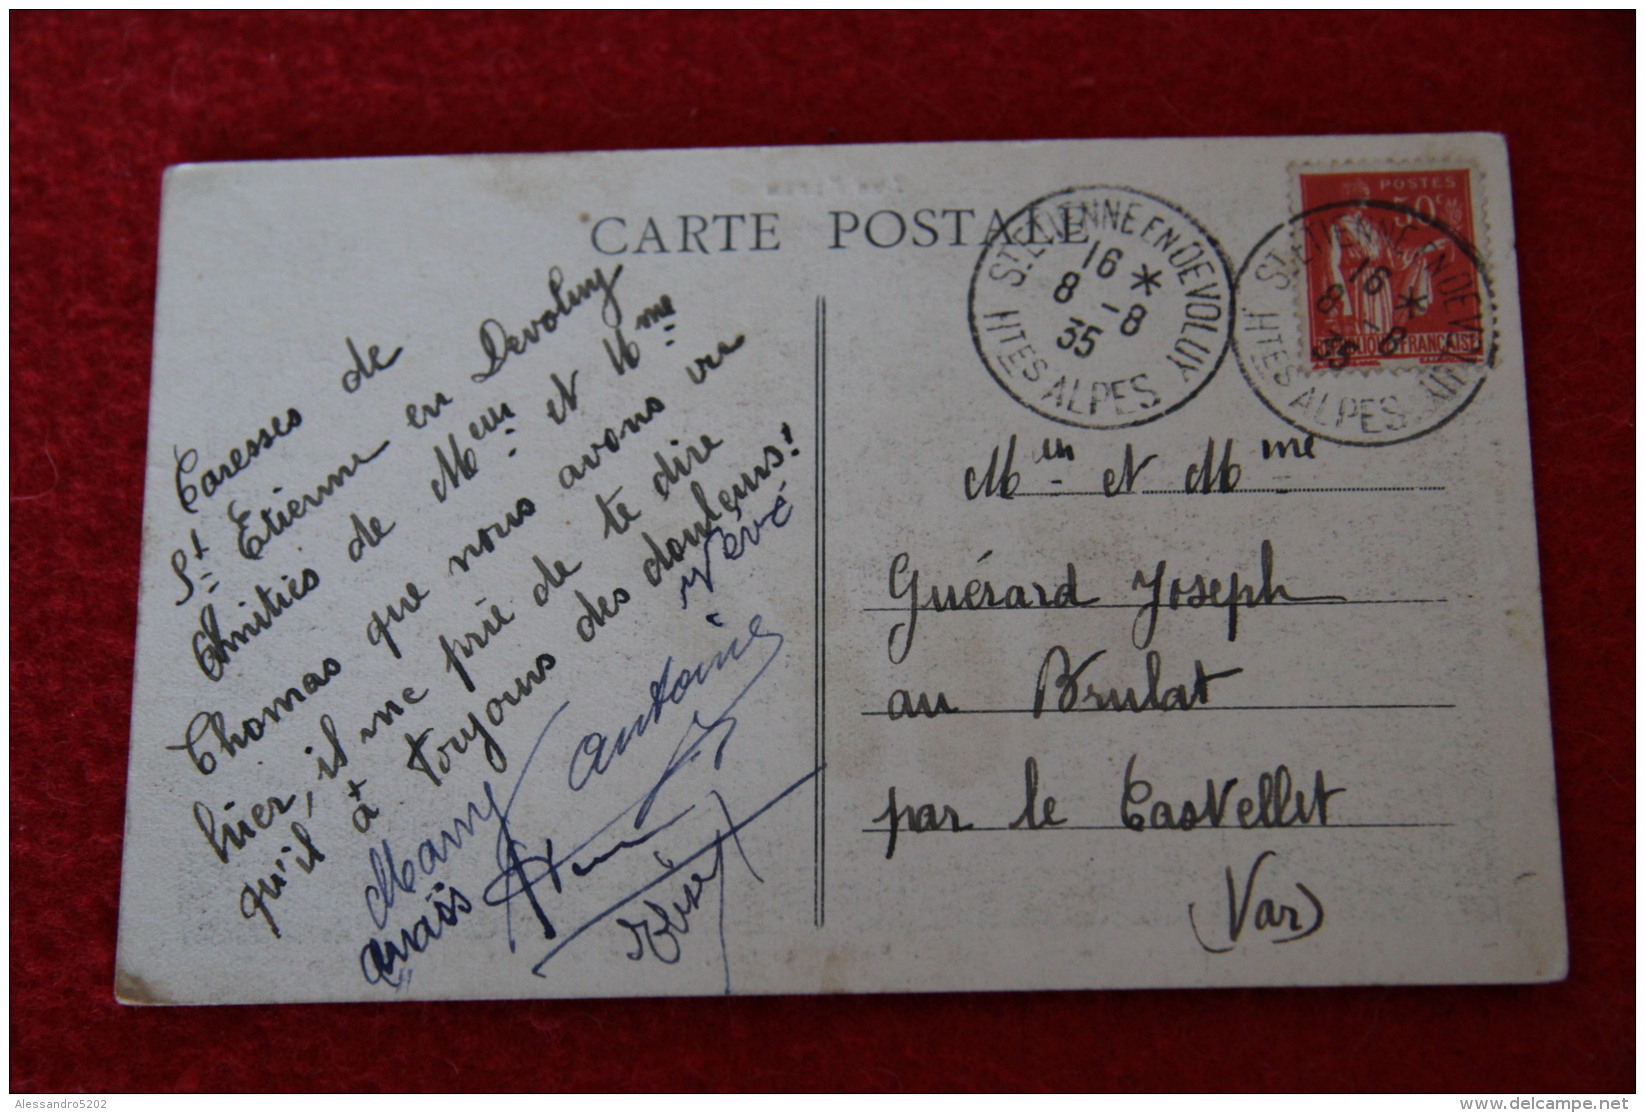 CARTE POSTALE
Caresses de
St Etienne en Devoluy
Amitiés de Meur et Mme
Thomas que nous avons vu
hier, il me prie de te dire
qu'il a toujours des douleurs!
Vévé
Mamy Antoine
Anaïs
ST ETIENNE EN DEVOLUY
16 *
8 - 8
35
HTES ALPES
POSTES
50 c
REPUBLIQUE FRANÇAISE
ST ETIENNE EN DEVOLUY
16 *
8 - 8
35
HTES ALPES
Meur et Mme
Guérard Joseph
au Brulat
par le Castellet
(Var)
Alessandro5202
delcampe.net